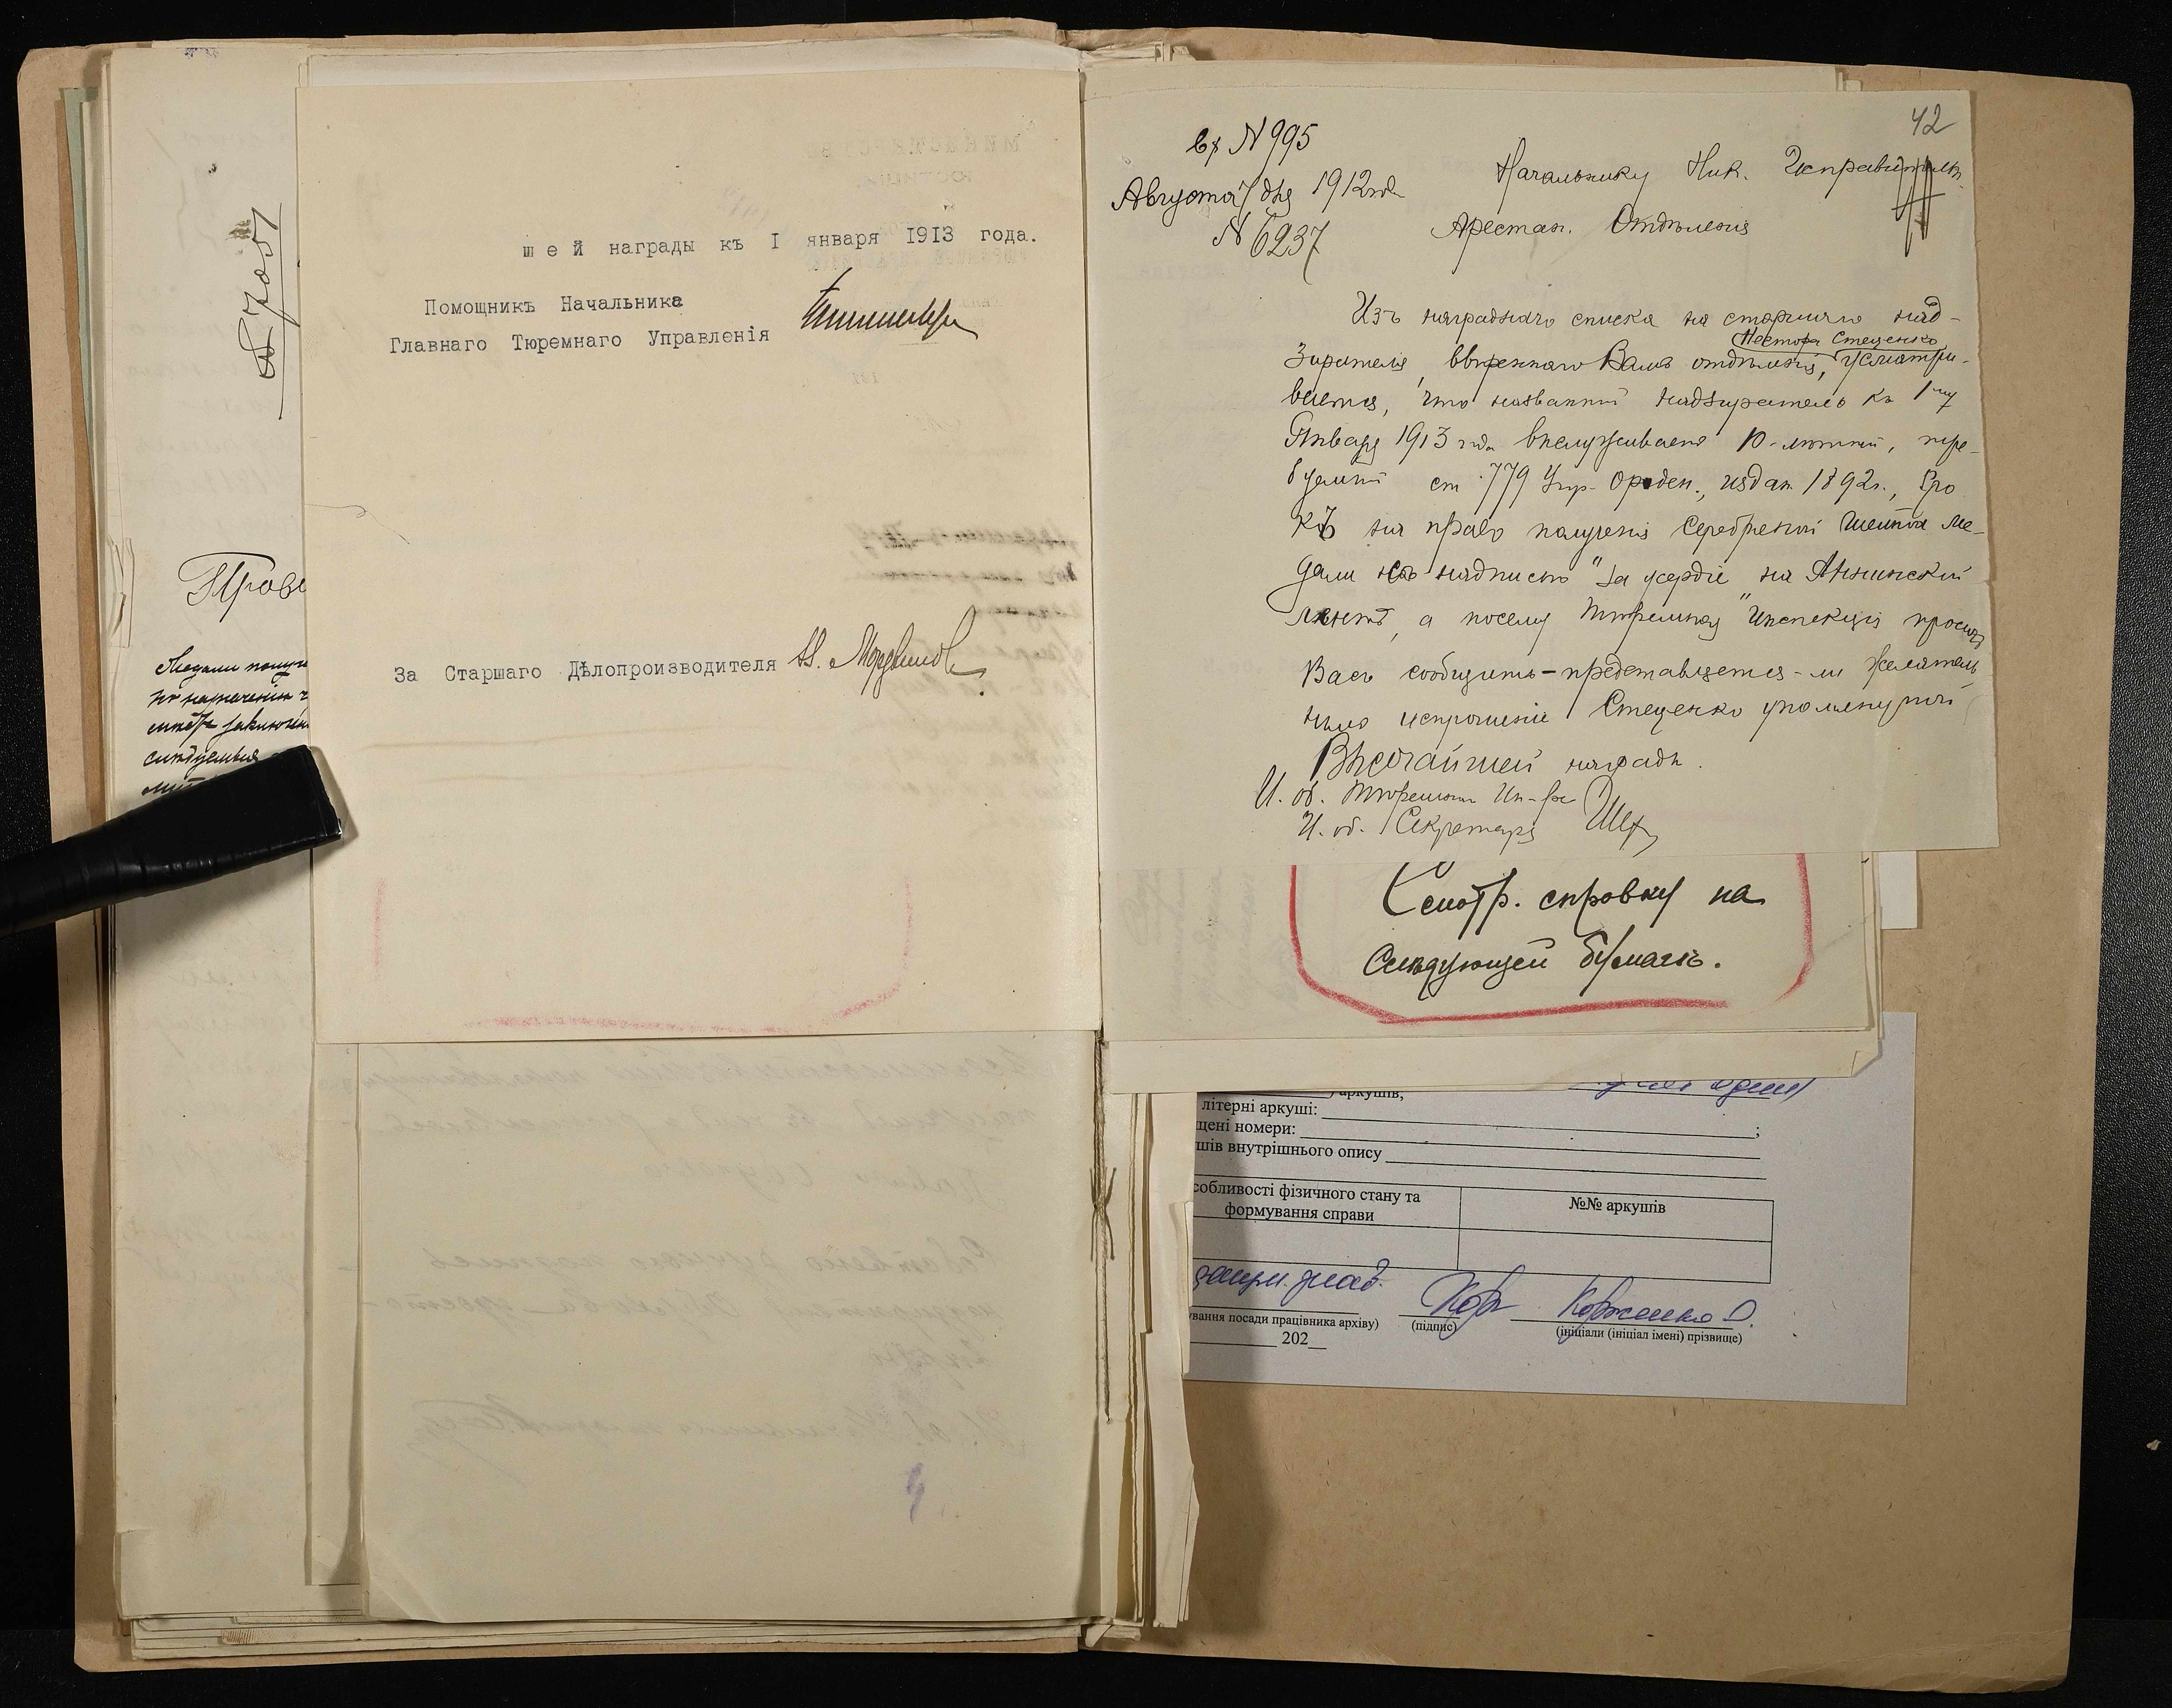 № 7051
Прове
Медали получ
по назначенію
слѣдуемыя
шей награды къ I января 1913 года.
Помощникъ Начальника
Главнаго Тюремнаго Управленія
За Старшаго Дѣлопроизводителя
42
вх N 995
Августа 7 дня 1912 года
N 6237
Начальнику Ник. Исправительн.
Арестан. Отдѣленія
Изъ награднаго списка на старшаго над-
Нестора Стеценко
зирателя, ввѣреннаго Вамъ отдѣленія, усматри-
вается, что названный надзиратель къ 1му
Января 1913 года выслуживаетъ 10-лѣтній, тре-
буемый ст 779 Учр. Орден., издан. 1892 г., сро
къ на право полученія серебреной шейной ме-
дали съ надписью "За усердіе" на Аннинской
лентѣ, а посему Тюремная Инспекція проситъ
Васъ сообщить-представляется-ли желатель
нымъ испрошеніе Стеценко упомянутой
Высочайшей награды.
И. об. Тюремнаго Ин-ра
И. об. Секретаря
Смотр. справку на
Слѣдующей бумагѣ.
аркушів,
літерні аркуші:
щені номери: ;
шів внутрішнього опису
собливості фізичного стану та
формування справи
№№ аркушів
Корженко О.
ування посади працівника архіву)
(підпис)
(ініціали (ініціал імені) прізвище)
202__